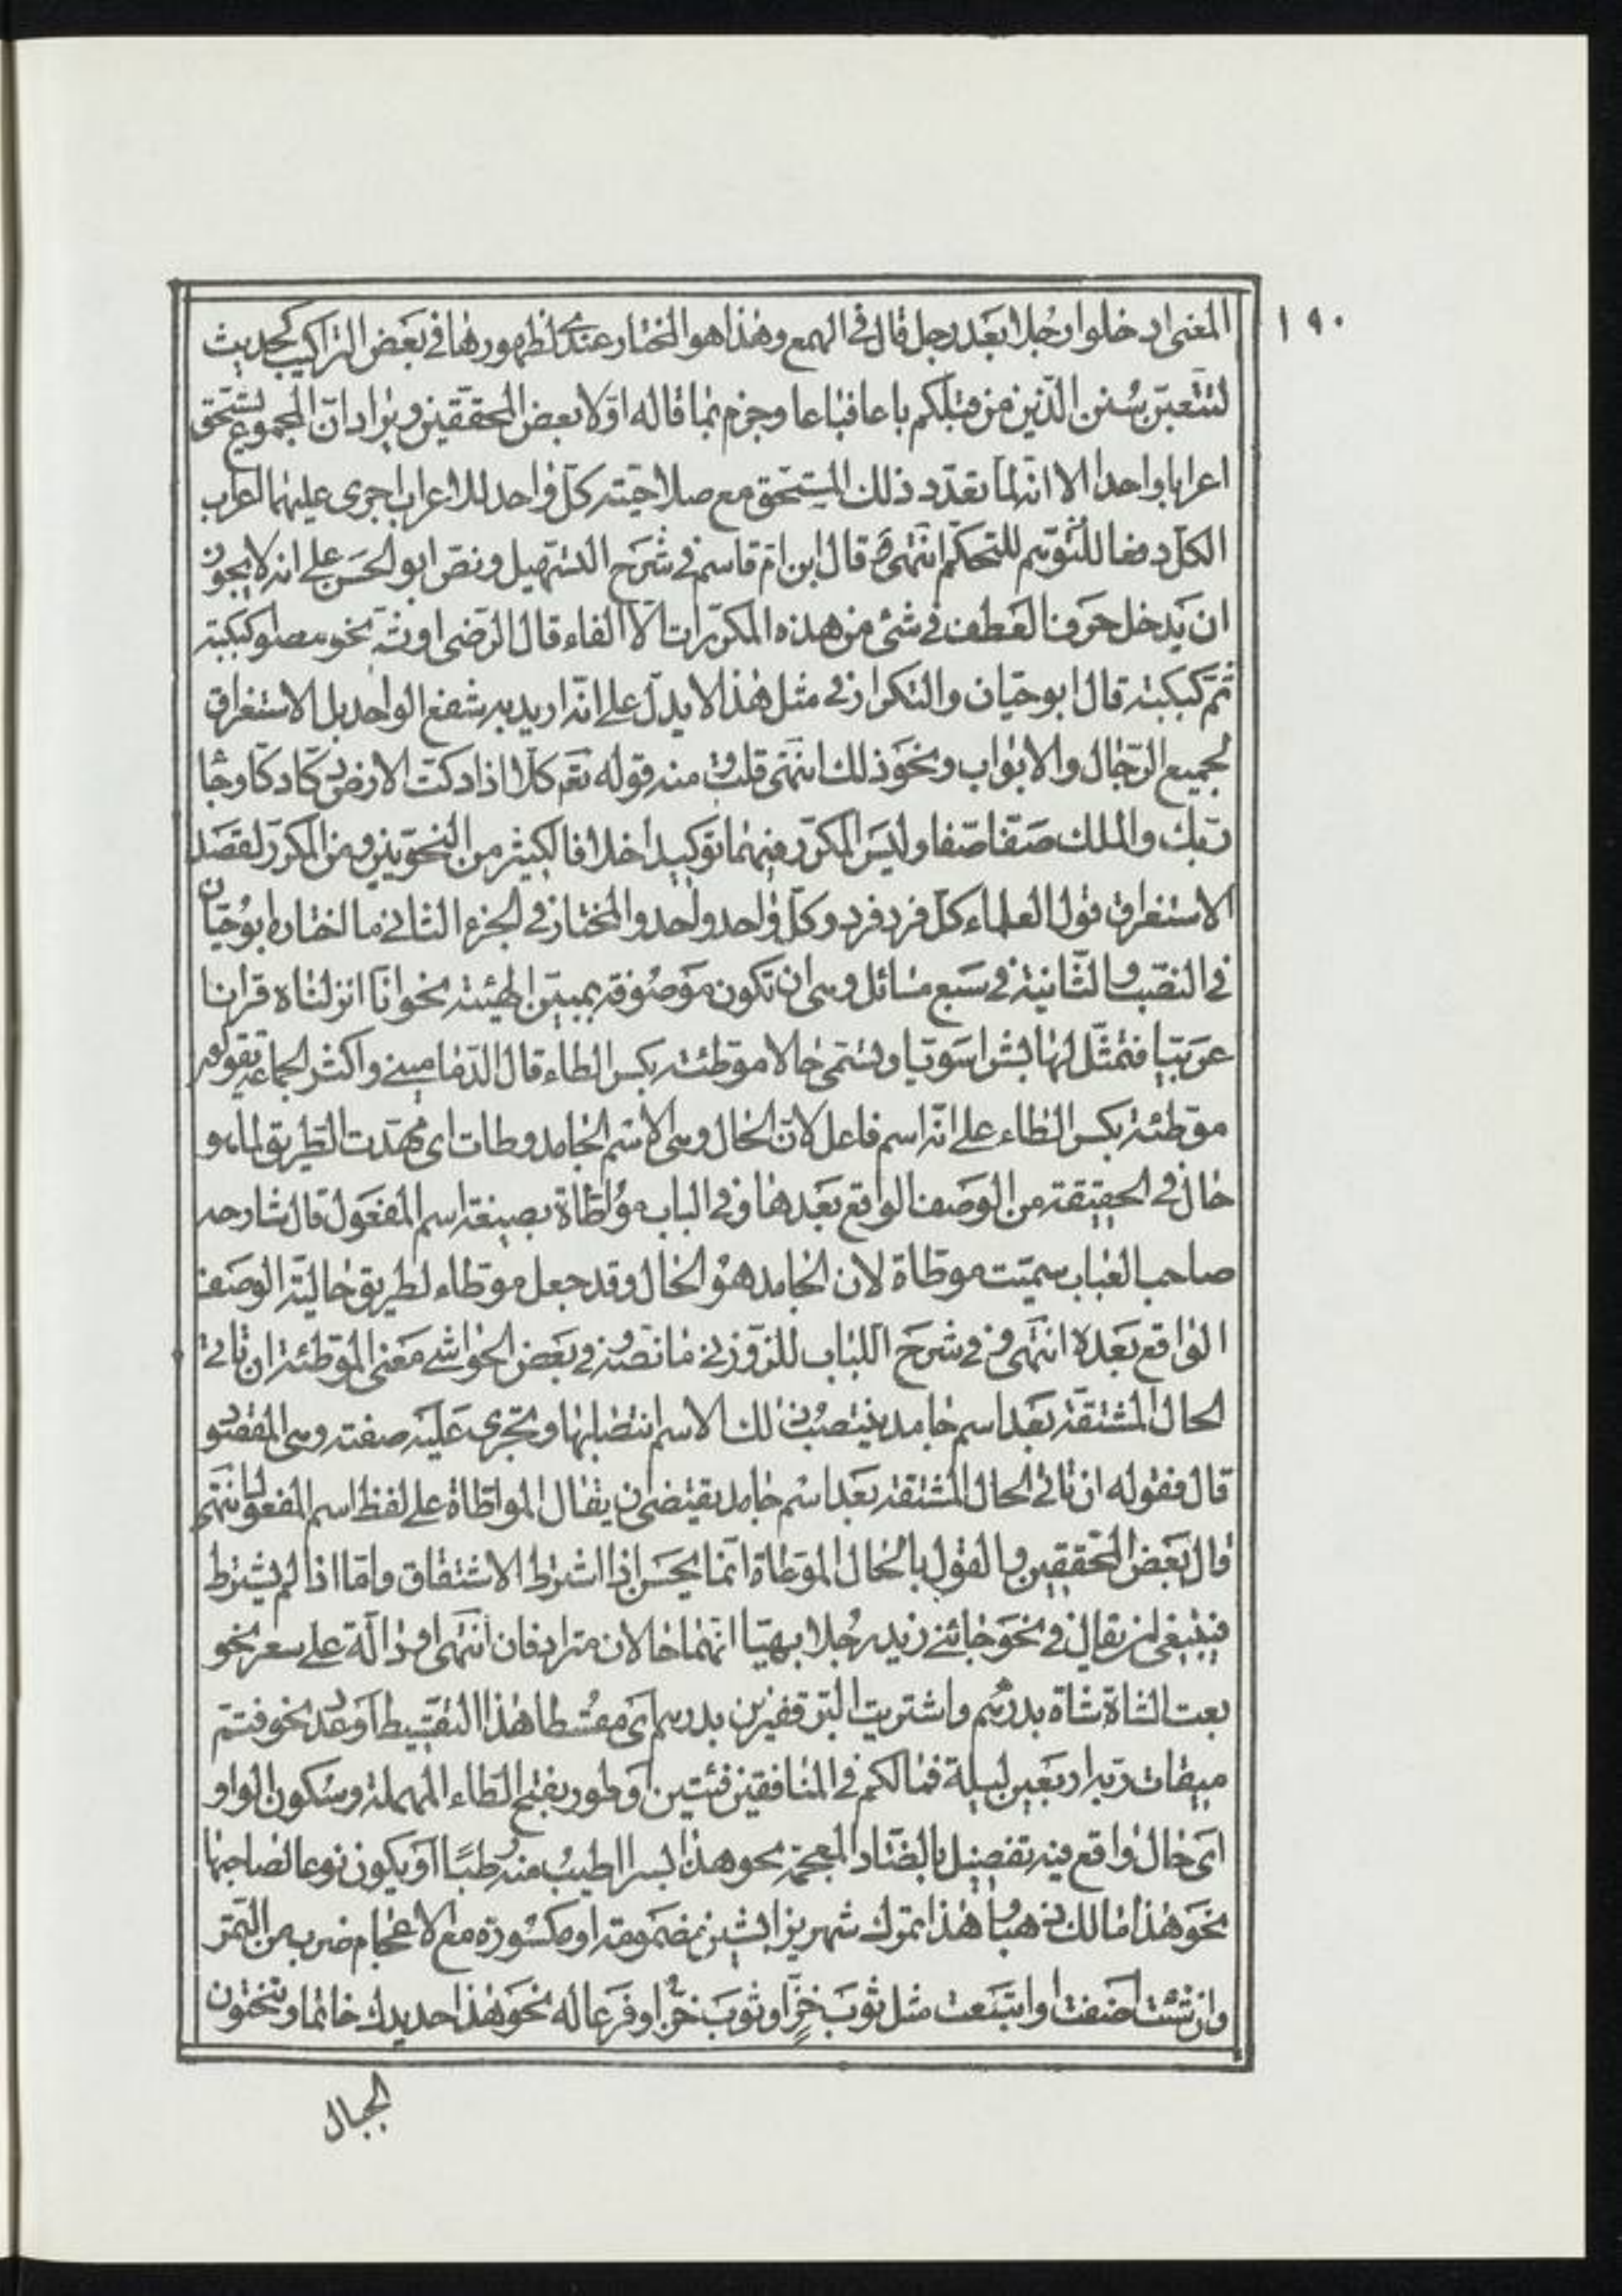 ١٩٠
المعنى ادخلوا رجلا بعد رجل قال في الهمع وهذا هو المختار عندي لظهورها في بعض التراكيب كحديث
لتتبعن سنن الذين من قبلكم باعا فباعا وجزم بما قاله اولا بعض المحققين ويزاد ان المجموع يستحق
اعرابا واحدا الا انه لما تعدد ذلك المستحق مع صلاحيته كل واحد للاعراب اجرى عليهما اعراب
الكل دفعا للتوهم للتحكم انتهى قال ابن ام قاسم في شرح التسهيل ونص ابو الحسن على انه لا يجوز
ان يدخل حرف العطف في شئ من هذه المكررات الا الفاء قال الرضى او ثم نحو كبكبته
ثم كبكبته قال ابو حيان والتكرار في مثل هذا لا يدل على انه اريد به شفع الواحد بل الاستغراق
لجميع الرجال والابواب ونحو ذلك انتهى قلت ومنه قوله تعم كلا اذا دكت الارض دكا دكا وجا
ربك والملك صفا صفا وليس المكرر فيهما توكيدا خلافا لكثير من النحويين ومن المكرر لقصد
الاستغراق قول العلماء كل فرد فرد وكل واحد واحد والمختار في الجزء الثاني ما اختاره ابو حيان
في النصب والثانية في سبع مسائل وهى ان تكون موصوفة بمبين الهيئة نحو انا انزلناه قرانا
عربيا فتمثل لها بشرا سويا وتسمى حالا موطئة بكسر الطاء قال الدماميني واكثر الجماعة يقولون
موطئة بكسر الطاء على انه اسم فاعل لان الحال وهى الاسم الجامد وطات اى مهدت الطريق لما هو
حال في الحقيقة من الوصف الواقع بعدها وفي الباب موطاة بصيغة اسم المفعول قال شارحه
صاحب العباب سميت موطاة لان الجامد هو الحال وقد جعل موطاء لطريق حالية الوصف
الواقع بعده انتهى وفي شرح اللباب للزوزني ما نصه وفي بعض الحواشي معنى الموطئة ان تاتي
الحال المشتقة بعد اسم جامد ينتصب ذلك الاسم انتصابها وتجرى عليه صفته وهى المقصود
قال فقوله ان تاتي الحال المشتقة بعد اسم جامد يقتضى ان يقال الموطاة على لفظ اسم المفعول انتهى
قال بعض المحققين والقول بالحال الموطاة انما يحسن اذا اشترط الاشتقاق واما اذا لم يشترط
فينبغى ان يقال في نحو جائني زيد رجلا بهيا انهما حالان مترادفان انتهى او دالة على سعر نحو
بعت الشاة شاة بدرهم واشتريت البر قفيزين بدرهم اى مقسطا هذا التقسيط او عدد نحو فتم
ميقات ربه اربعين ليلة فما لكم في المنافقين فئتين او طور بفتح الطاء المهملة وسكون الواو
اى حال واقع فيه تفضيل بالضاد المعجمة نحو هذا بسرا اطيب منه رطبا او يكون نوعا لصاحبها
نحو هذا مالك ذهبا وهذا تمرك شهريزا بشين مضمومة او مكسورة مع الاعجام ضرب من التمر
وان شئت اضفت او اتبعت مثل ثوب خز او ثوب خز او فرعا له نحو هذا حديدك خاتما وتنحتون
الجبال